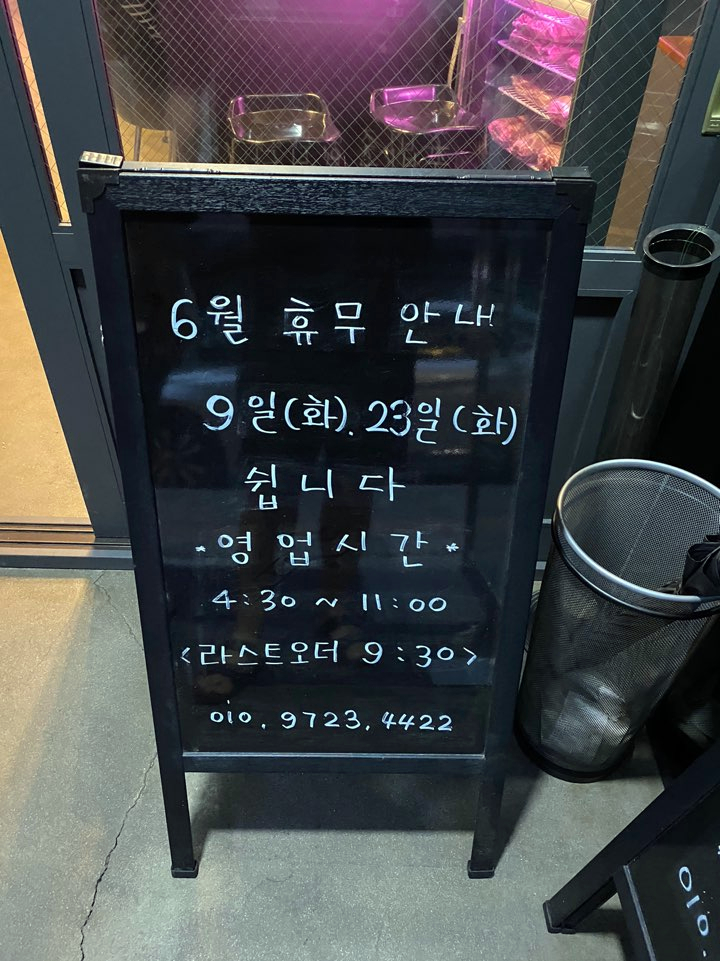 6월 휴무 안내
9일(화). 23일(화)
쉽니다
*영업시간*
4:30 ~ 11:00
<라스트오더 9:30>
010. 9723. 4422
010.